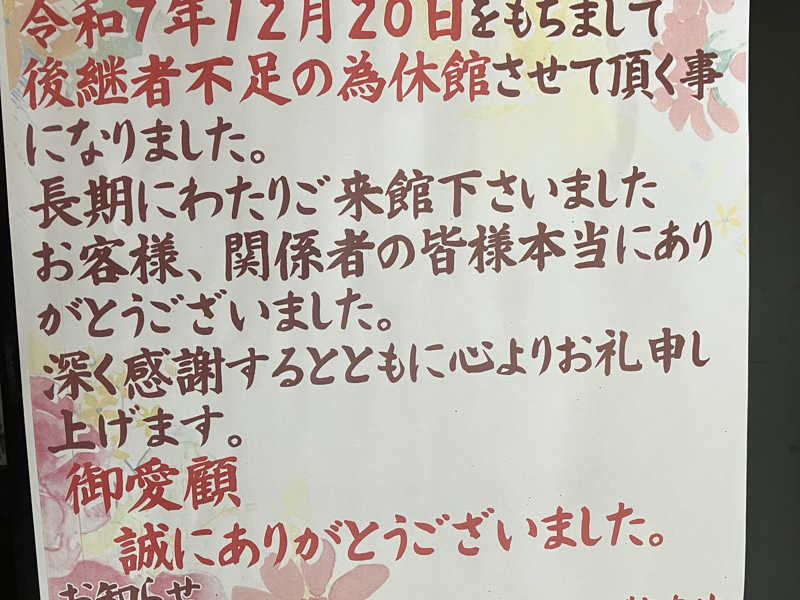 令和7年12月20日をもちまして
後継者不足の為休館させて頂く事
になりました。
長期にわたりご来館下さいました
お客様、関係者の皆様本当にあり
がとうございました。
深く感謝するとともに心よりお礼申し
上げます。
御愛顧
誠にありがとうございました。
お知らせ